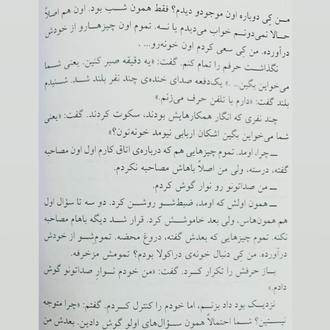 من کِی دوباره اون موجودو دیدم؟ فقط همون شب بود. اون هم اصلاً
حالا نمی‌دونم خواب می‌دیدم یا نه. تموم اون چیزهارو از خودش
درآورده. من کِی سعی کردم اون خونه‌رو... .»
نگذاشت حرفم را تمام کنم. گفت: «یه دقیقه صبر کنین. یعنی شما
می‌خواین بگین... .» یک‌دفعه صدای خنده‌ی چند نفر بلند شد. شنیدم
بلند گفت: «دارم با تلفن حرف می‌زنم.»
چند نفری که انگار همکارهایش بودند، سکوت کردند. گفت: «یعنی
شما می‌خواین بگین اشکان اربابی نیومد خونه‌تون؟»
ــ چرا، اومد. تموم چیزهایی هم که درباره‌ی اتاق کارم اول اون مصاحبه
گفته، درسته. ولی من اصلاً باهاش مصاحبه نکردم.
ــ من صداتونو رو نوار گوش کردم.
ــ همون اولش که اومد، ضبط‌شو روشن کرد. دو سه تا سؤال اول
هم همون‌هاس، ولی بعد خاموشش کرد. قرار شد دیگه باهام مصاحبه
نکنه. تموم چیزهایی که بعدش گفته، دروغ محضه. تموم‌شو از خودش
درآورده. من کِی دنبال خونه‌ی دراکولا بودم؟ تمومش مزخرفه.
باز حرفش را تکرار کرد. گفت: «من خودم نوارِ صداتونو گوش
دادم.»
نزدیک بود داد بزنم، اما خودم را کنترل کردم. گفتم: «چرا متوجه
نیستین؟ شما احتمالاً همون سؤال‌های اولو گوش دادین. بعدش من